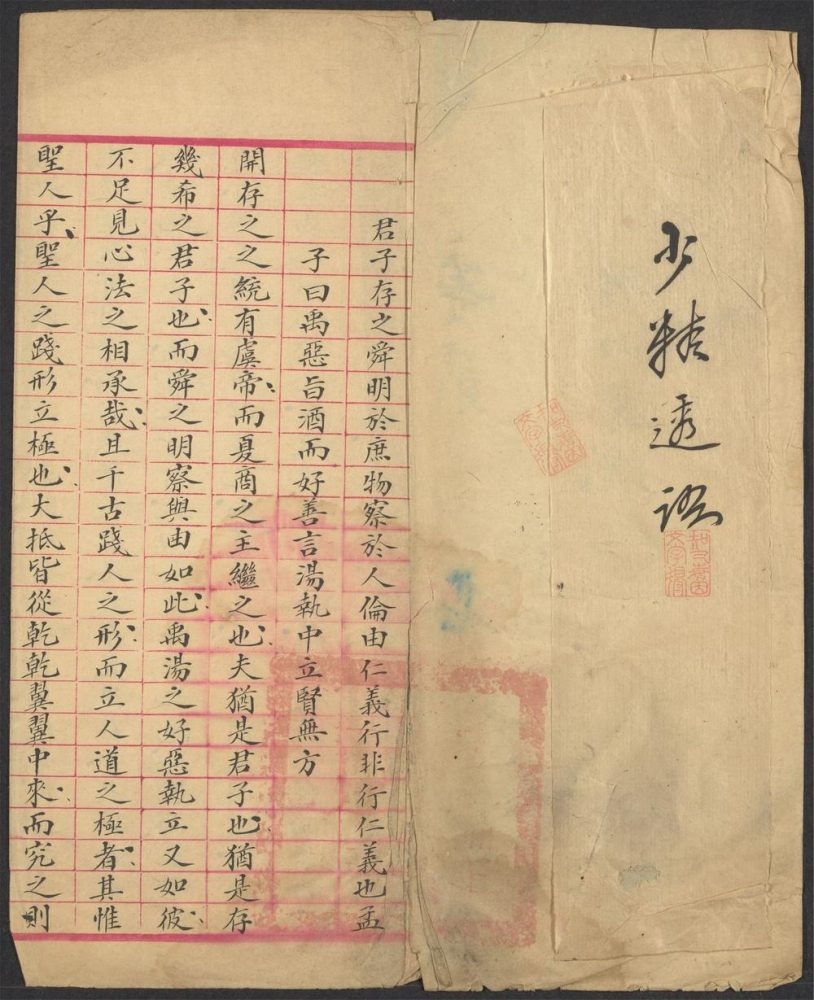 少精透
君子存之舜明於庶物察於人倫由仁義行非行仁義也孟
子曰禹惡旨酒而好善言湯執中立賢無方
開存之之統有虞帝而夏商之主繼之也夫猶是君子也猶是存
幾希之君子也而舜之明察與由如此禹湯之好惡執立又如彼
不足見心法之相承哉且千古踐人之形而立人道之極者其惟
聖人乎聖人之踐形立極也大抵皆從乾乾翼翼中來而究之則